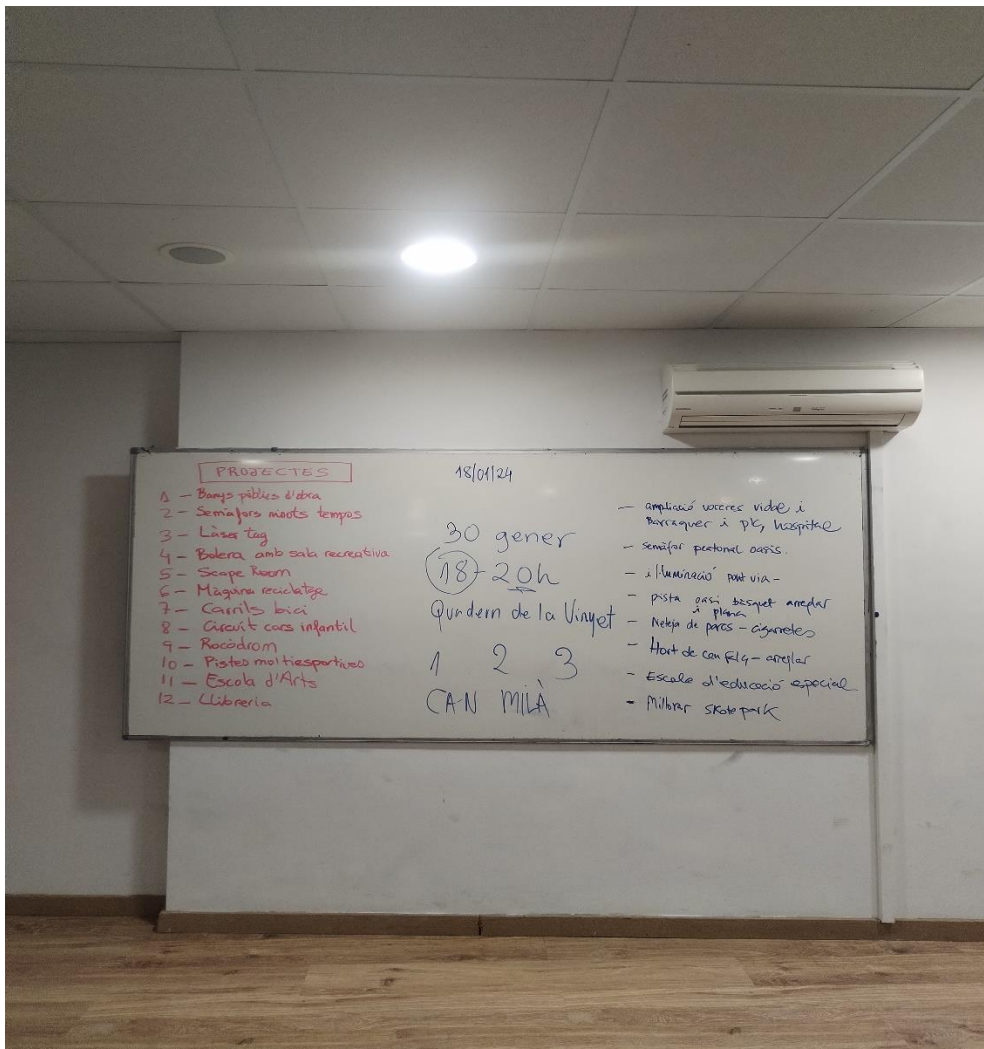 PROJECTES
1 - Banys públics d'obra
2 - Semàfors minuts tempos
3 - Làser tag
4 - Bolera amb sala recreativa
5 - Scape Room
6 - Màquina reciclatge
7 - Carrils bici
8 - Circuit cars infantil
9 - Rocòdrom
10 - Pistes moltiesportives
11 - Escola d'Arts
12 - Llibreria
18/01/24
30 gener
18-20h
de la Vinyet
1 2 3
CAN MILÀ
- ampliació voreres vidal i
Barraquer i pk, hospital
- semàfor peatonal oasis.
- il·luminació pont via-
- pista oasi bàsquet arreglar
i plana
- Neteja de parcs - cigarretes
- Hort de can - arreglar
- Escola d'educació especial
- Millorar skatepark